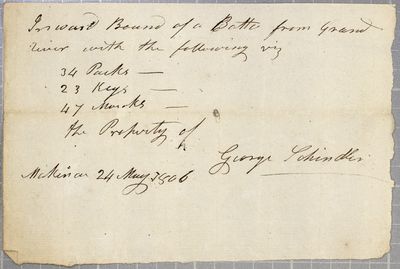 Inward Bound of a Batto from Grand
river with the following viz
34 Packs —
23 Kegs —
47 Mococks —
the Property of
George Schindler
Mckinac 24 May 1806